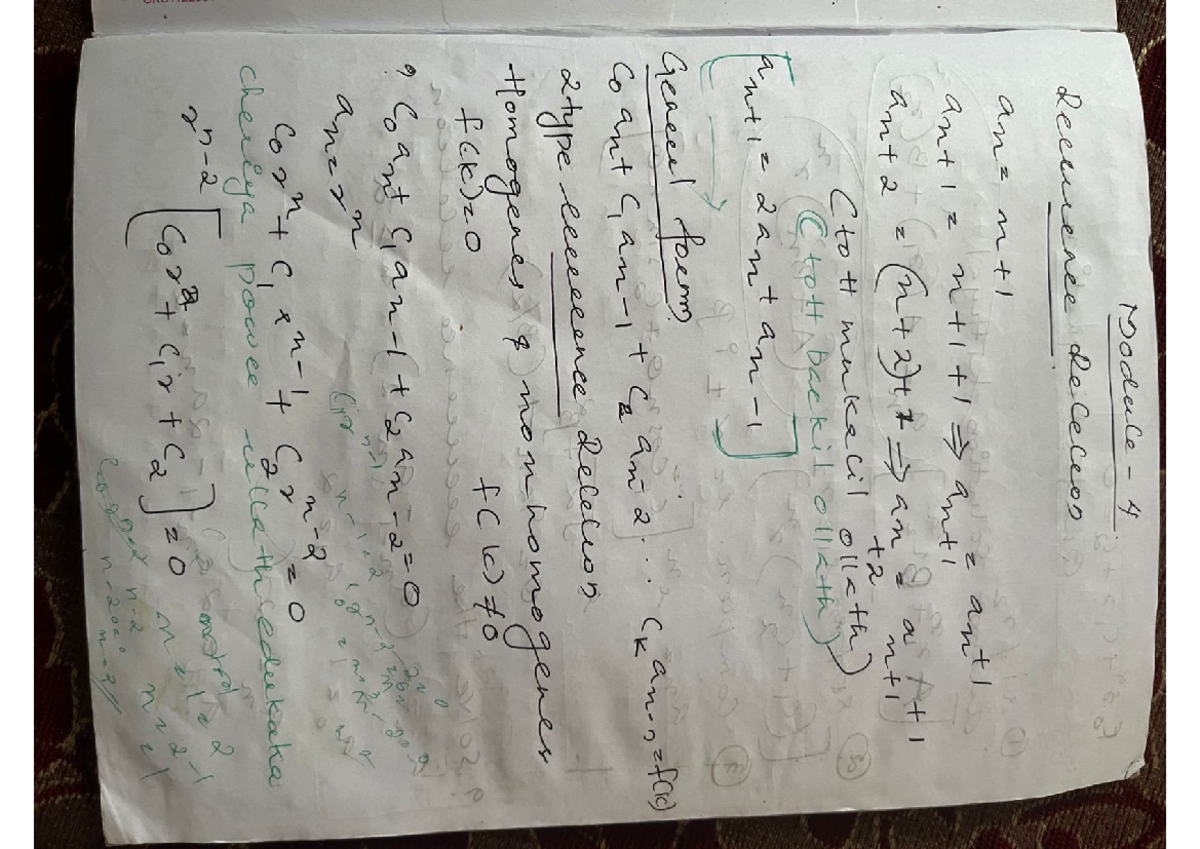 Module - 4
Recurrence Relation
an = n+1
an+1 = n+1+1 ⇒ an+1 = an+1
an+2 = (n+2)+1 ⇒ an+2 = an+1+1
(tott munkacil ollath)
(tott backil ollath)
[an+1 = 2an + an-1]
General form
C0 an + C1 an-1 + C2 an-2 ... Ck an-n = f(k)
2 type recurrence relation
Homogenes & non homogenes
f(k)=0 f(k)≠0
? C0 an + C1 an-1 + C2 an-2 = 0
an = r^n
C0 r^n + C1 r^n-1 + C2 r^n-2 = 0
cheriya power
r^n-2 [C0 r^2 + C1 r + C2] = 0